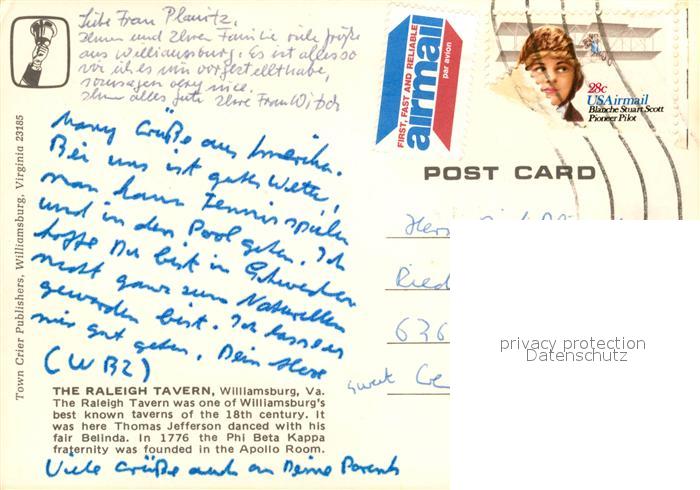 Liebe Frau Planitz,
Ihnen und Ihrer Familie viele Grüße
aus Williamsburg. Es ist alles so
wie ich es mir vorgestellt habe,
sozusagen very nice.
Ihnen alles Gute Ihre Frau
FIRST, FAST AND RELIABLE
airmail
par avion
28c
USAirmail
Blanche Stuart Scott
Pioneer Pilot
POST CARD
Many Grüße aus Amerika.
Bei uns ist gutes Wetter,
man kann Tennis spielen
und in den Pool gehen. Ich
hoffe Du bist in Schweden
nicht ganz zum Naturellen
geworden bist. Ich lasse es
mir gut gehen. Dein
(WBZ)
Herr
Ried
636
THE RALEIGH TAVERN, Williamsburg, Va.
The Raleigh Tavern was one of Williamsburg's
best known taverns of the 18th century. It
was here Thomas Jefferson danced with his
fair Belinda. In 1776 the Phi Beta Kappa
fraternity was founded in the Apollo Room.
Viele Grüße auch an Deine Parents
Town Crier Publishers, Williamsburg, Virginia 23185
privacy protection
Datenschutz